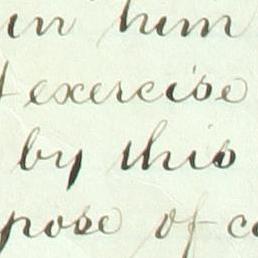 in him
exercise
by this
pose of